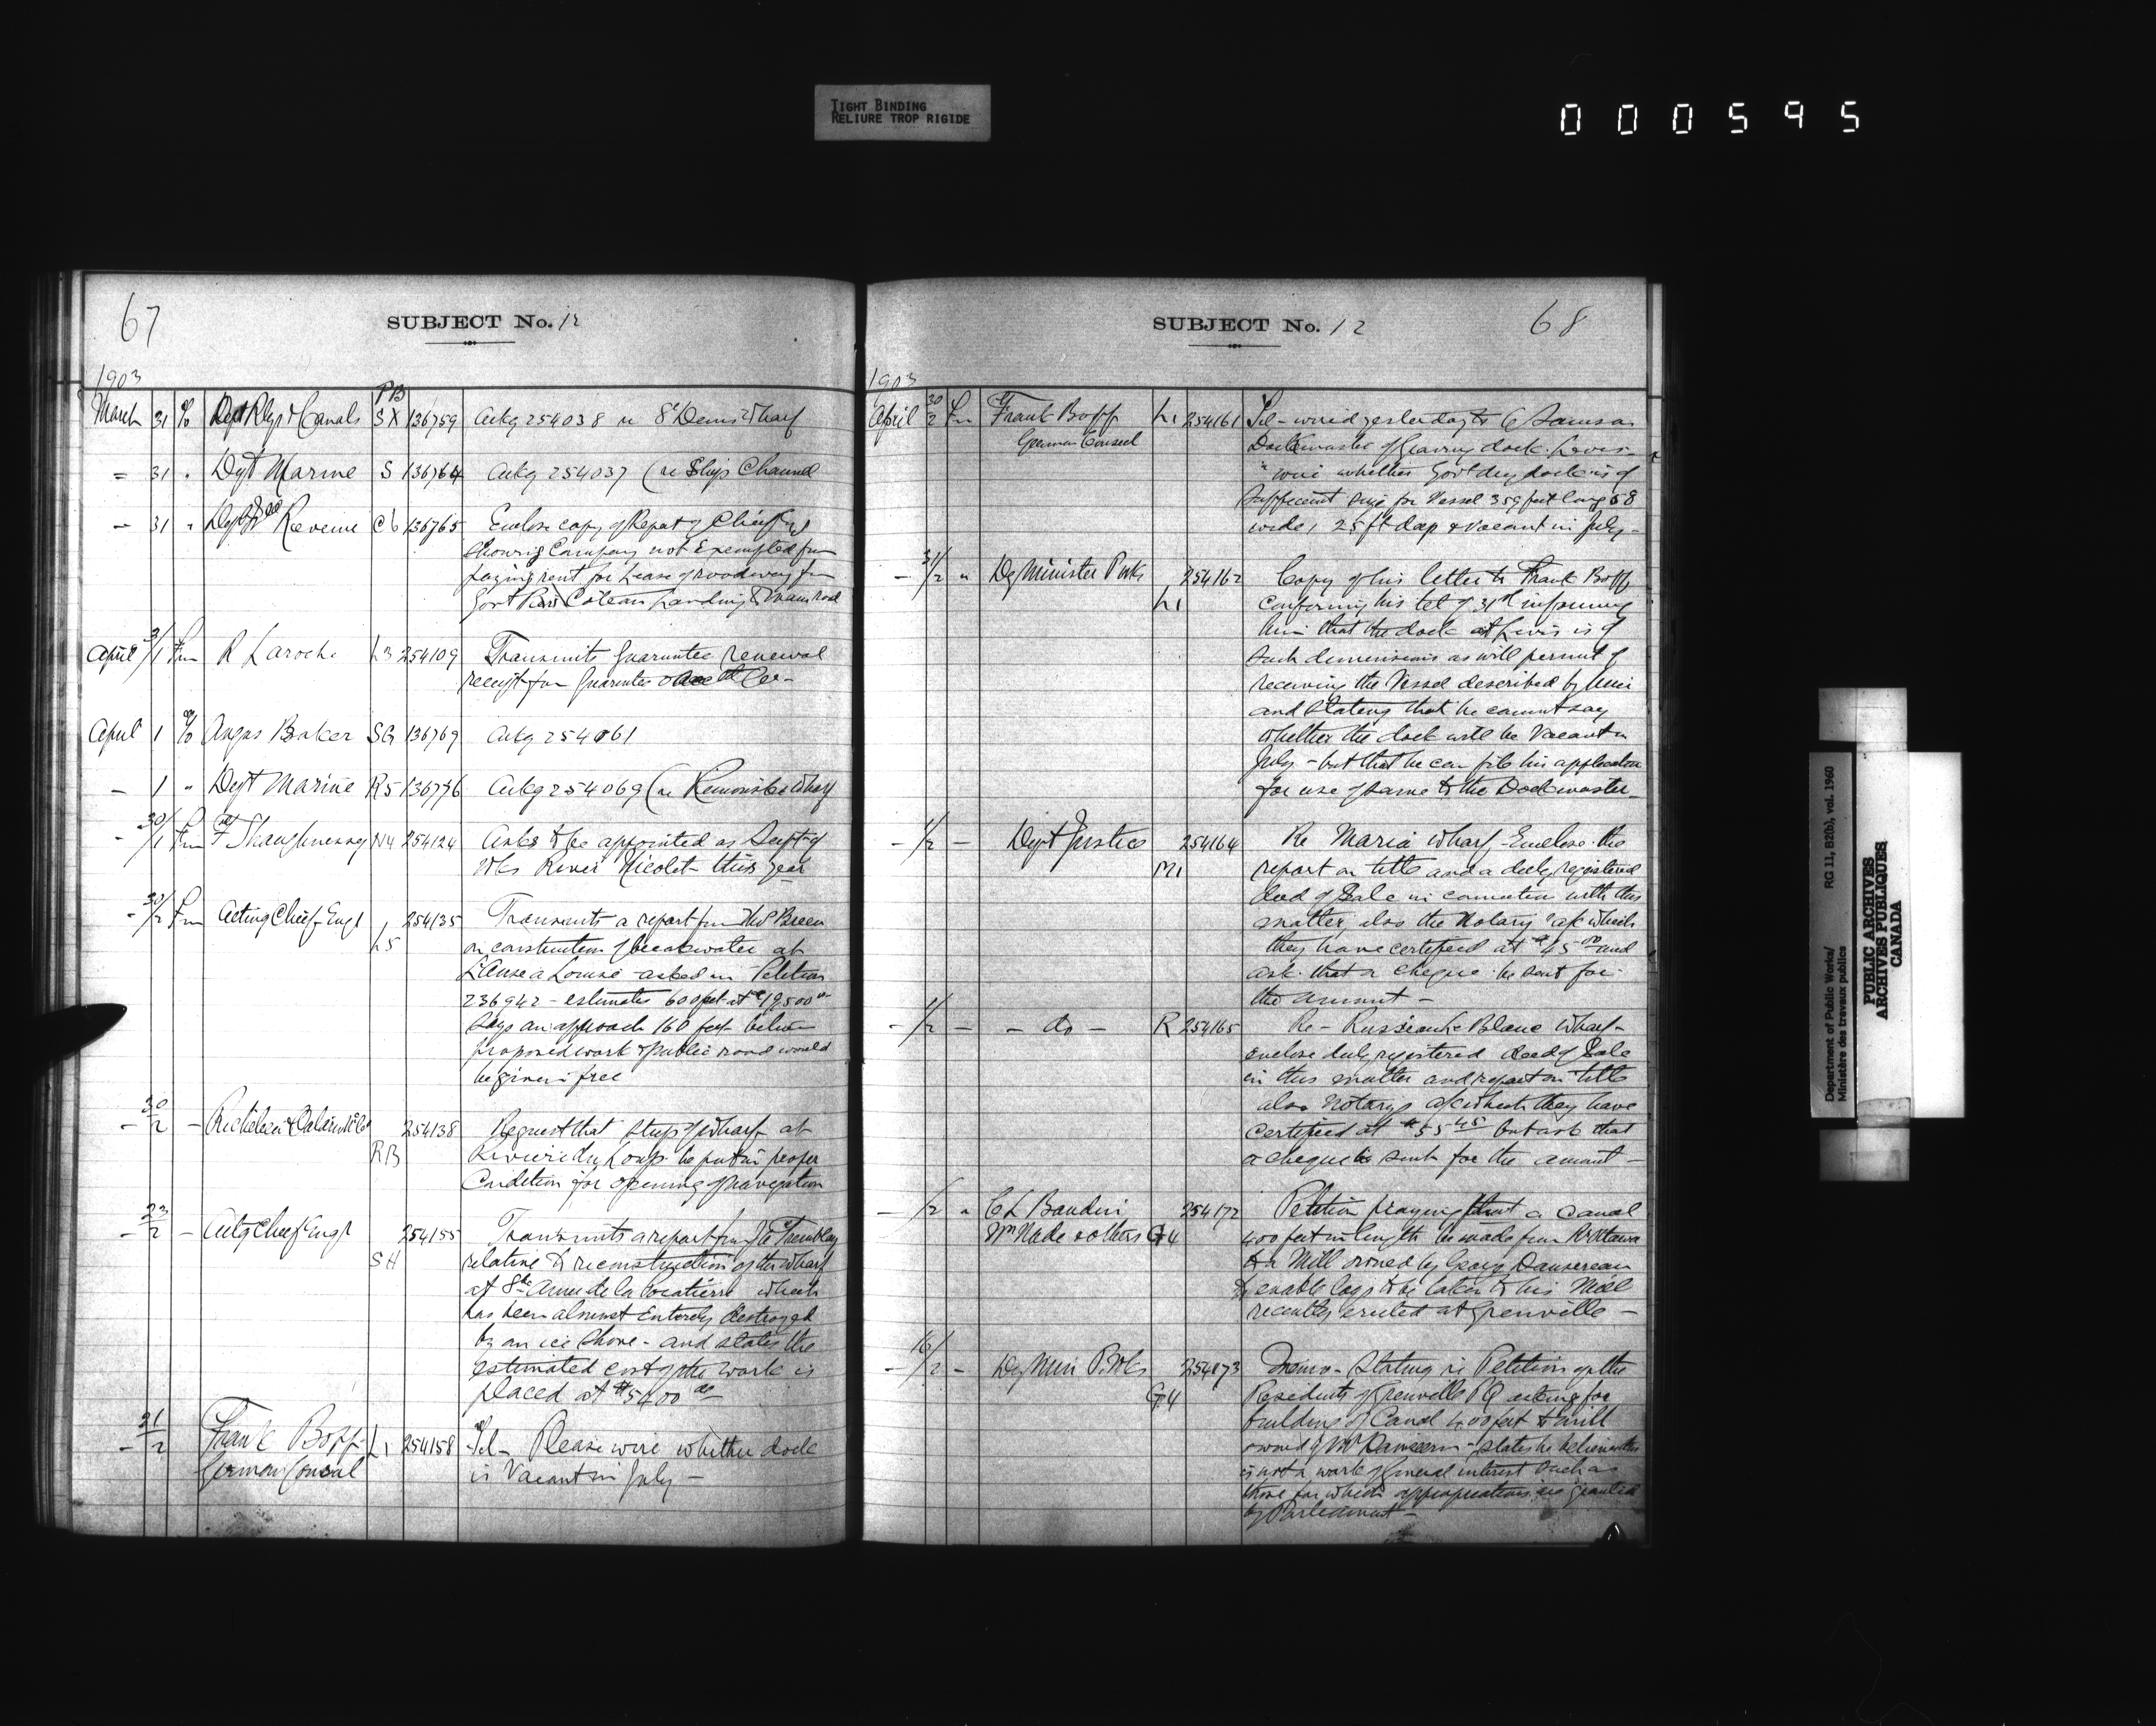 TIGHT BINDING
RELIURE TROP RIGIDE
000595
67
SUBJECT No. 12
1903
PB
March 31 % Dept Rlys & Canals SX 136759 Ackg 254038 re St Denis Wharf
" 31 " Dept Marine S 136764 Ackg 254037 (re Ship Channel
" 31 " Dept Revenue C6 136765 Enclose copy of Report of
showing Company not Exempted from
paying rent for Lease of roadway from
Coteau Landing & main road
April 31/1 Fm R Laroche L3 254109 Transmits Guarantee renewal
receipt for Guarantee
April 1 % Angus Baker SG 136769 Ackg 254061
- 1 " Dept Marine R5 136776 Ackg 254069 (re Rimouski Wharf
- 30/1 Fm F Shaughnessy N4 254124 Asks to be appointed as Supt of
Wks River Nicolet this year
- 30/2 Fm Acting Chief Engr 254135 Transmits a report from Thos Breen
L5 on construction of breakwater at
L'Anse a Louise asked in Petition
236942 - estimates 600 feet at $19,500 00
Says an approach 160 feet between
proposed work & public road would
be given free
- 30/2 - Richelieu & Ontario N Co 254138 Request that strip of Wharf at
RB Riviere du Loup be put in proper
Condition for opening of navigation
- 23/2 - Actg Chief Engr 254155 Transmits a report from Tremblay
SH relative to reconstruction of the Wharf
at Ste Anne de la Pocatiere which
has been almost Entirely destroyed
by an ice shove - and states the
estimated cost of the work is
placed at $5400 00
- 31/2 Frank Bopp L1 254158 Tel - Please wire whether dock
German Consul is Vacant in July -
SUBJECT No. 12
68
1903
April 30/2 Fm Frank Bopp L1 254161 Tel - wired yesterday to Samson
German Consul Dockmaster of Graving dock Levis -
" wire whether Govt dry dock is of
sufficient size for Vessel 359 feet long 58
wide, 25 ft deep & vacant in July -
- 31/2 " Dy Minister P Wks 254162 Copy of his letter to Frank Bopp
L1 confirming his tel of 31st informing
him that the dock at Levis is of
such dimensions as will permit of
receiving the Vessel described by him
and stating that he cannot say
whether the dock will be Vacant in
July - but that he can file his application
for use of same to the Dockmaster -
- 1/2 - Dept Justice 254164 Re Maria Wharf - Enclose the
M1 report on title and a duly registered
deed of Sale in connection with this
matter, also the Notary's a/c which
they have certified at $45 00 and
ask that a cheque be sent for
the amount -
- 1/2 - - do - R 254165 Re - Blanc Wharf -
enclose duly registered deed of Sale
in this matter and report on title
also Notarys a/c which they have
certified at $55 45 but ask that
a cheque be sent for the amount -
- 1/2 " C L Baudin 254172 Petition praying that a Canal
Wm Nade & others G4 400 feet in length be made from R Ottawa
to a Mill owned by Georg Dansereau
to enable logs to be taken to his Mill
recently erected at Grenville -
- 16/2 - Dy Min P. Wks 254173 Memo - stating re Petition of the
G4 Residents of Grenville PQ asking for
building of Canal 400 feet to mill
owned by Mr Dansereau - states he believes this
is not a work of General interest such as
those for which appropriations are granted
by Parliament -
Department of Public Works/ RG 11, B2(b), vol. 1960
Ministère des travaux publics
PUBLIC ARCHIVES
ARCHIVES PUBLIQUES
CANADA